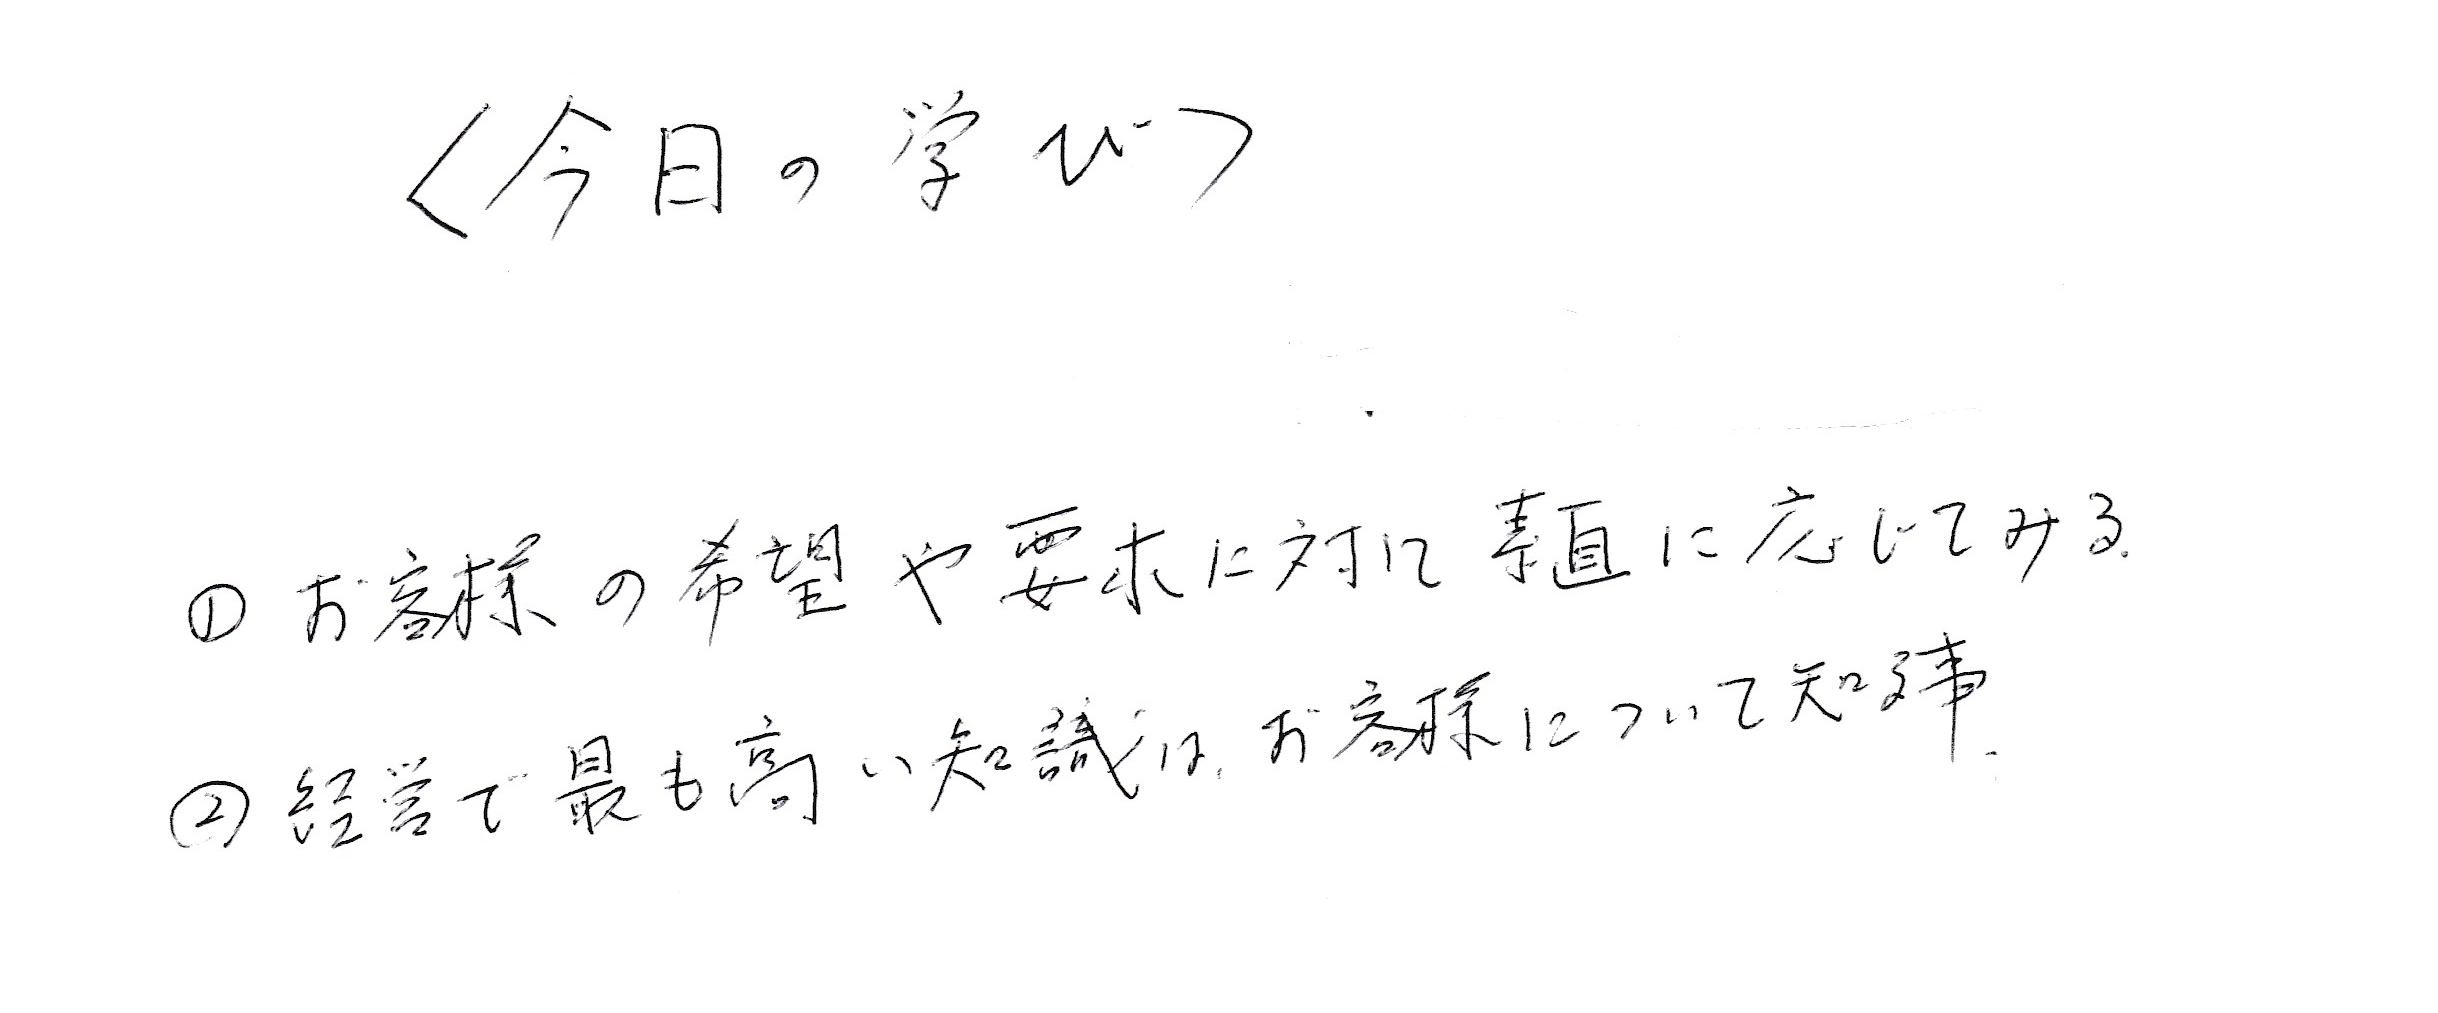 〈今日の学び〉
① お客様の希望や要求に対して素直に応じてみる.
② 経営で最も高い知識は、お客様について知る事.